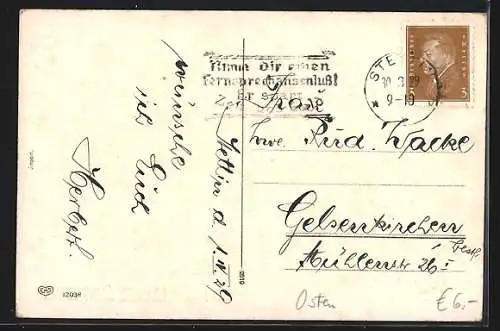 wünsche
ich
Euch
Herbert.
Stettin d. 1. IV. 29
Nimm Dir einen
Fernsprechanschluß!
Er spart
STE
30.3.29
9-10
Frau
Wwe. Rud. Wacke
Gelsenkirchen
Mühlenstr 26 I
Westf.
Osten
€ 6,-
12038
0510